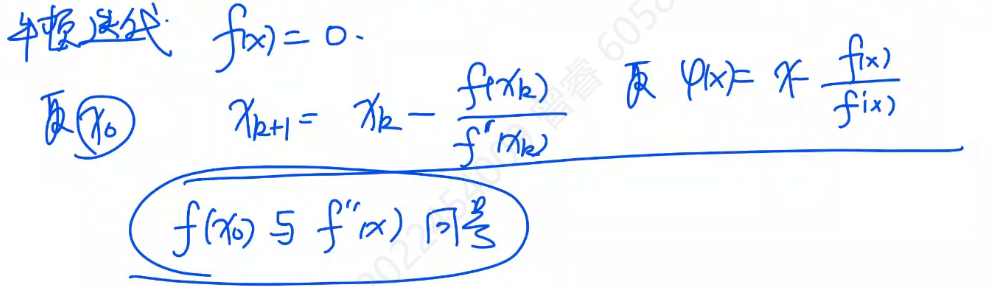 牛顿迭代 f(x) = 0.
取 x₀ x_{k+1} = x_k - \frac{f(x_k)}{f''(x_k)} 取 φ(x) = x - \frac{f(x)}{f'(x)}
f(x₀) 与 f''(x) 同号